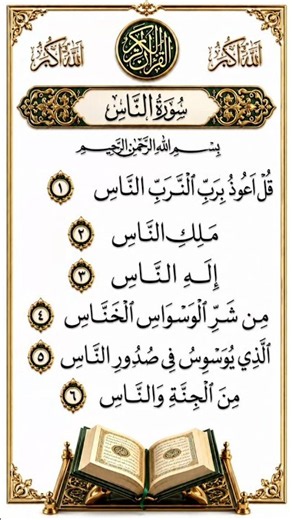 اللهُ أَكْبَر
القرآن الكريم
اللهُ أَكْبَر
سُورَةُ النَّاسِ
بِسْمِ اللهِ الرَّحْمٰنِ الرَّحِيمِ
قُلْ اَعُوذُ بِرَبِّ ٱلْنَّرَبِّ النَّاسِ ١
مَلِكِ النَّاسِ ٢
إِلَهِ النَّاسِ ٣
مِن شَرِّ الْوَسْوَاسِ الْخَنَّاسِ ٤
الَّذِي يُوَسْوِسُ فِي صُدُورِ النَّاسِ ٥
مِنَ الْجِنَّةِ وَالنَّاسِ ٦